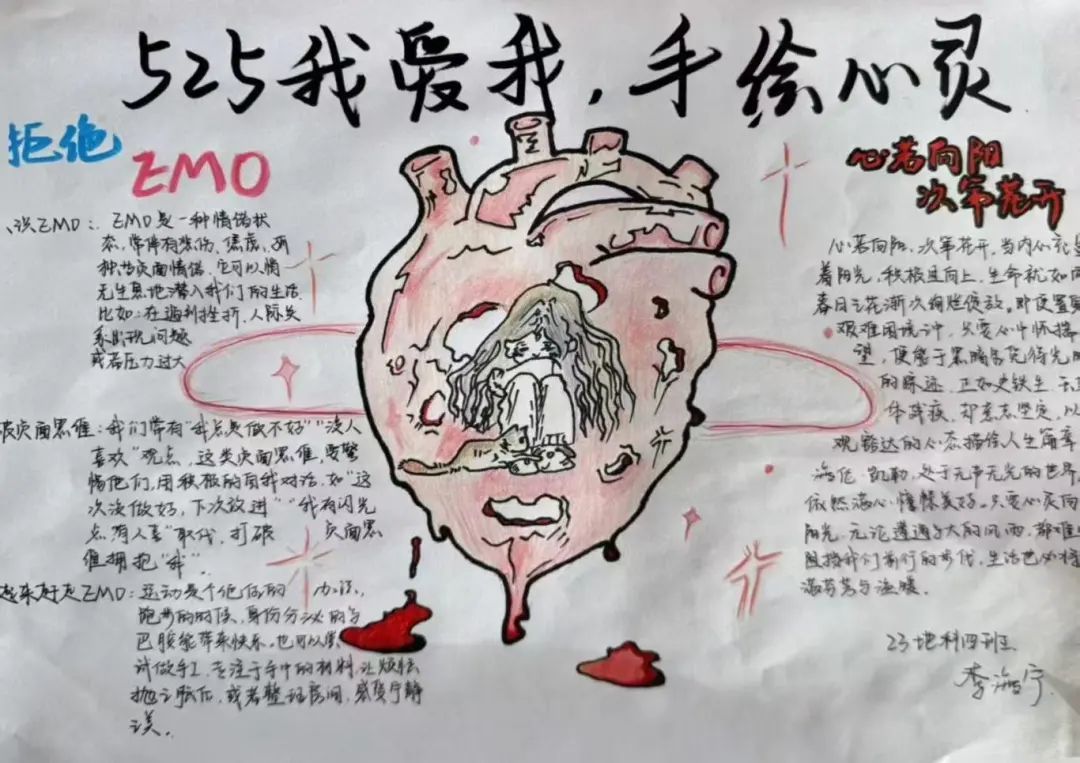 525我爱我,手绘心灵
拒绝
EMO
识EMO:EMO是一种情绪状
态,常伴有悲伤、焦虑、
种与负面情绪,它可以悄
无生息地潜入我们的生活.
比如:在遇到挫折,人际关
系出现问题
或者压力过大
负面思维:我们常有“我总是做不好”“没人
喜欢”观点,这类负面思维要警
惕他们,用积极的自我对话,如“这
次没做好,下次改进”“我有闪光
点,有人喜”取代,打破 负面思
维拥抱“我”.
起来赶走EMO:运动是个绝佳的 办法,
跑步的时候,身份分泌的多
巴胺能带来快乐.也可以尝
试做手工,专注于手中的材料,让烦恼
抛之脑后,或者整理房间,感受宁静
之美.
心若向阳
次第花开
心若向阳,次第花开,当内心充
着阳光,积极且向上,生命就如同
春日之花渐次绚烂绽放.即便置身
艰难困境中,只要心中怀揣
望,便能于黑暗窥待光明
的踪迹.正如史铁生
体残疾,却意志坚定,以
观豁达的心态描绘人生篇章
海伦·凯勒,处于无声无光的世界
依然满心憧憬美好.只要心灵向
阳光,无论遭遇多大的风雨,都难
阻挡我们前行的步伐,生活也必将
满芬芳与温暖.
23地科四班
李海宁